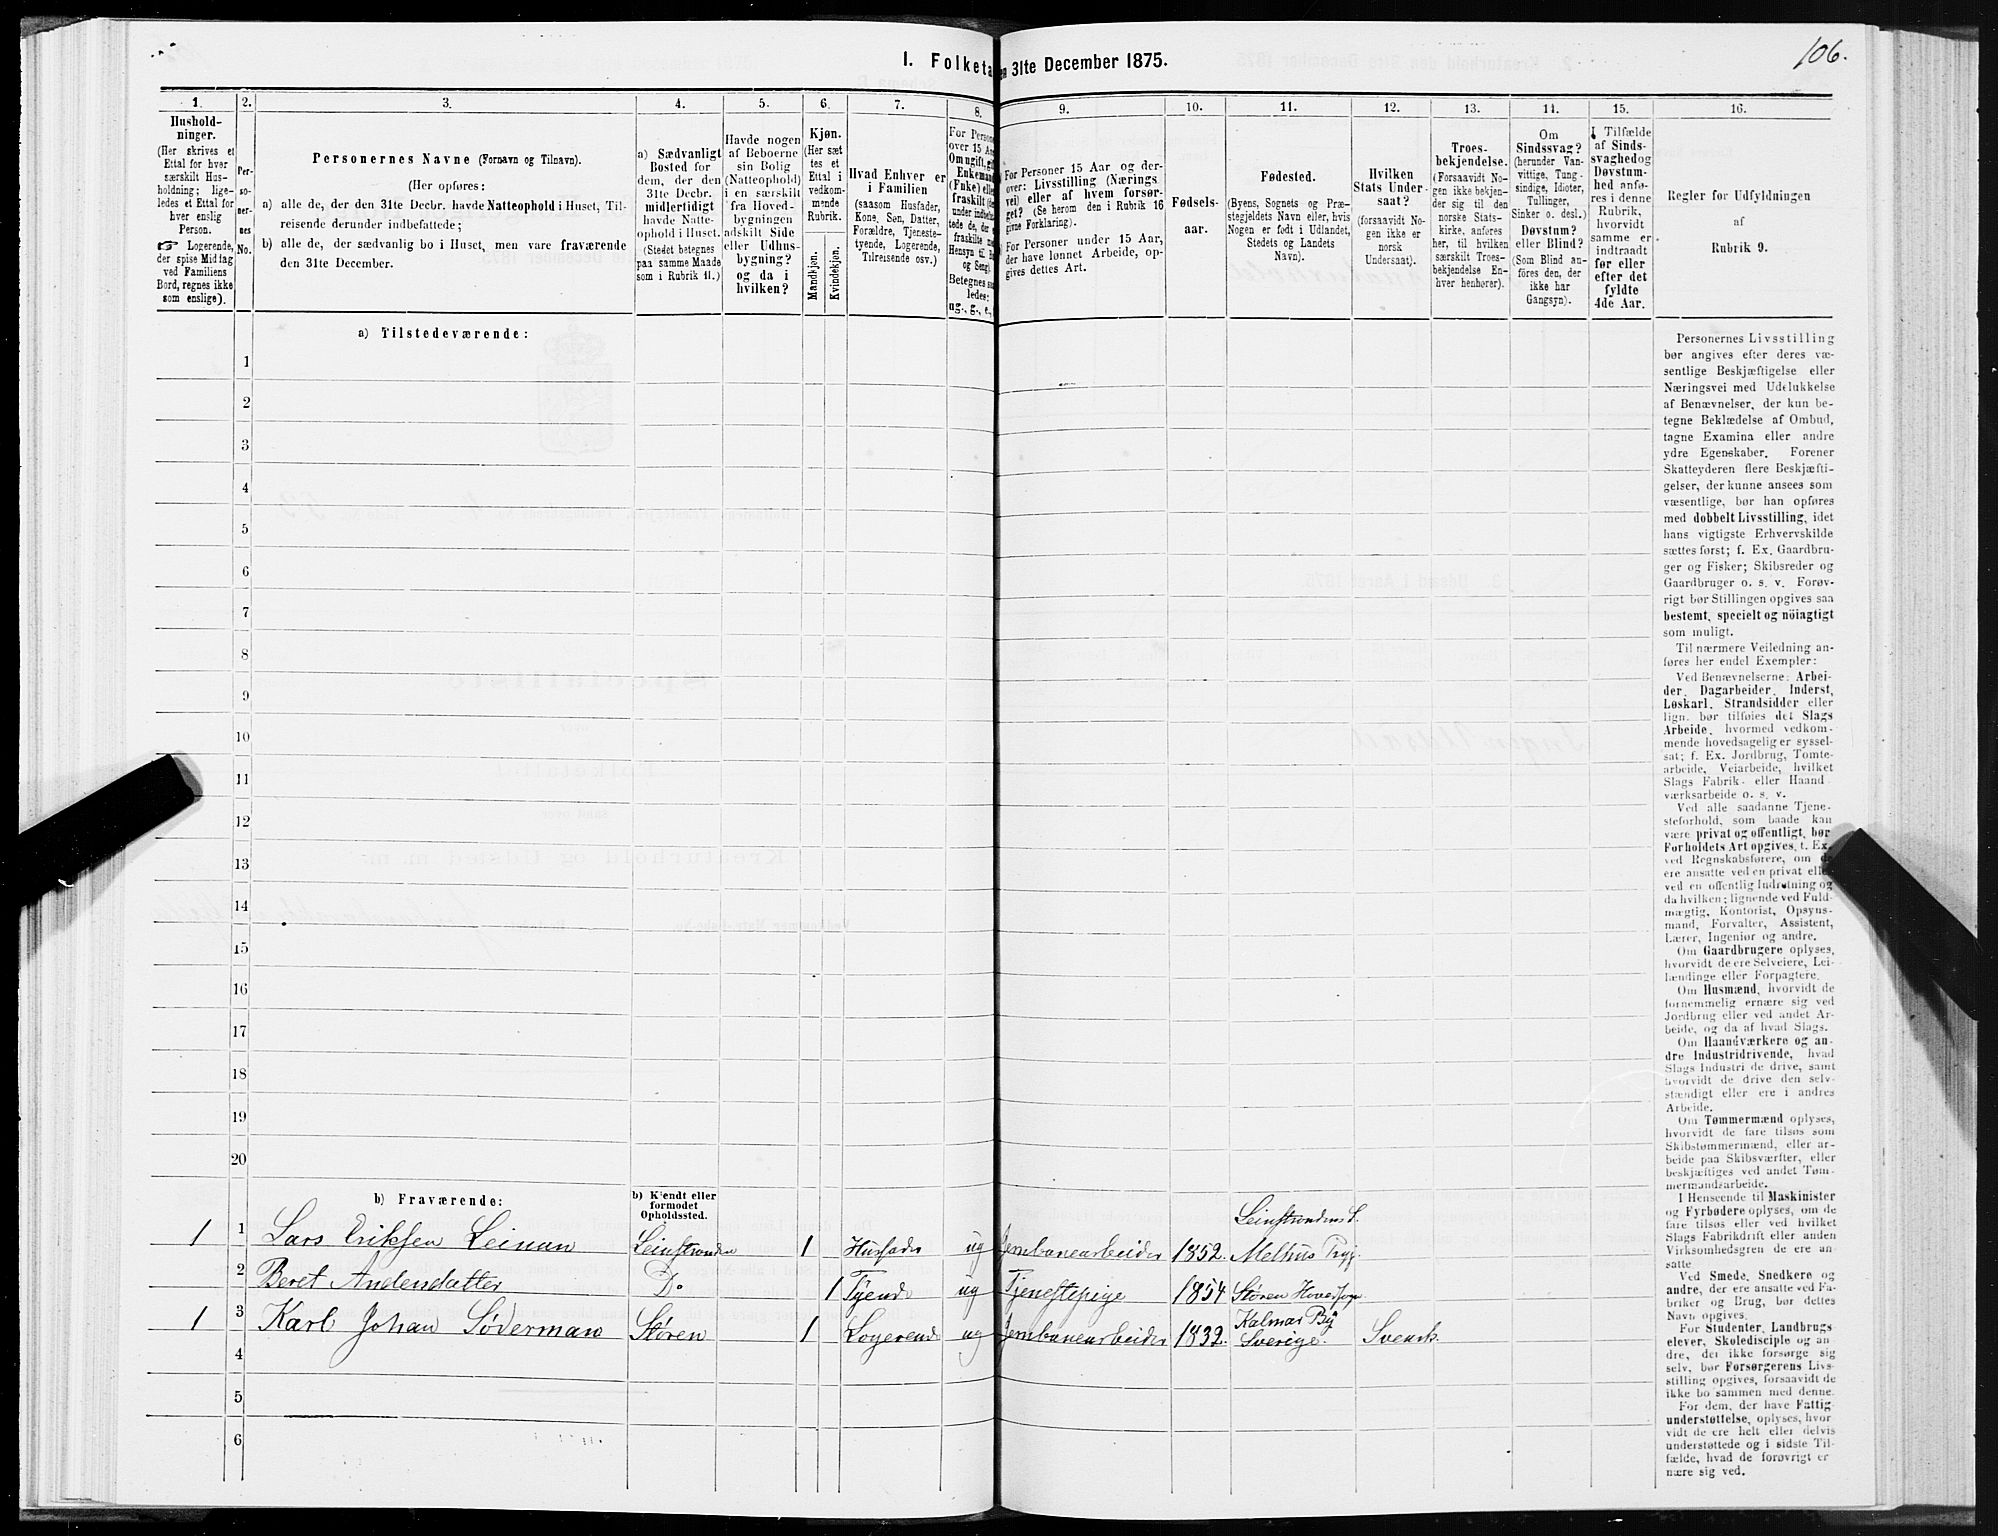 106.
I. Folketa en 31te December 1875.
1. 2. 3. 4. 5. 6. 7. 8. 9. 10. 11. 12. 13. 14. 15. 16.
Hushold-
ninger.
(Her skrives et
Ettal for hver
særskilt Hus-
holdning; lige-
ledes et Ettal for
hver enslig
Person.
☞ Logerende,
der spise Middag
ved Familiens
Bord, regnes ikke
som enslige).
Per-
so-
ner-
nes
No.
Personernes Navne (Fornavn og Tilnavn).
(Her opføres:
a) alle de, der den 31te Decbr. havde Natteophold i Huset, Til-
reisende derunder indbefattede;
b) alle de, der sædvanlig bo i Huset, men vare fraværende
den 31te December.
a) Sædvanligt
Bosted for
dem, der den
31te Decbr.
midlertidigt
havde Natte-
ophold i Huset.
(Stedet betegnes
paa samme Maade
som i Rubrik 11.)
Havde nogen
af Beboerne
sin Bolig
(Natteophold)
i en særskilt
fra Hoved-
bygningen
adskilt Side
eller Udhus-
bygning?
og da i
hvilken?
Kjøn.
(Her sæt
tes et
Ettal i
vedkom-
mende
Rubrik.
Mandkjøn.
Kvindekjøn.
Hvad Enhver er
i Familien
(saasom Husfader,
Kone, Søn, Datter,
Forældre, Tjeneste-
tyende, Logerende,
Tilreisende osv.)
For Person
over 15 Aa
Om ugift, gif
Enkemand
(Enke) elle
fraskilt
under indbefat
tede de, der
fraskilte
Hensyn til B
og Seng).
Betegnes sa
ledes:
ug., g., e.,
For Personer 15 Aar og der-
over: Livsstilling (Nærings
vei) eller af hvem forsør-
get? (Se herom den i Rubrik 16
givne Forklaring).
For Personer under 15 Aar,
der have lønnet Arbeide, op-
gives dettes Art.
Fødsels-
aar.
Fødested.
(Byens, Sognets og Præ-
stegjeldets Navn eller, hvis
Nogen er født i Udlandet,
Stedets og Landets
Navn).
Hvilken
Stats Under-
saat?
(forsaavidt No-
gen ikke er
norsk
Undersaat).
Troes-
bekjendelse.
(Forsaavidt No-
gen ikke bekjen-
der sig til den
norske Stats-
kirke, anføres
her, til hvilken
særskilt Troes-
bekjendelse En-
hver henhører).
Om
Sindssvag?
(herunder Van-
vittige, Tung-
sindige, Idioter,
Tullinger,
Sinker o. desl.)
Døvstum?
eller Blind?
(Som Blind an-
føres den, der
ikke har
Gangsyn).
I Tilfælde
af Sinds-
svaghedog
Døvstum-
hed anfø-
res i denne
Rubrik,
hvorvidt
samme er
indtraadt
før eller
efter det
fyldte
4de Aar.
Regler for Udfyldningen
af
Rubrik 9.
a) Tilstedeværende:
1
2
3
4
5
6
7
8
9
10
11
12
13
14
15
16
17
18
19
20
b) Fraværende:
b) Kjendt eller
formodet
Opholdssted.
1 1 Lars Eriksen Leinan Leinstranden 1 Husfader ug Jernbanearbeider 1852. Leinstrandens S. Melhus Prgj.
2 Beret Andersdatter Do 1 Tyende ug Tjenestepige 1854 Støren Hovedsogn
1 3 Karl Johan Söderman Støren 1 Logerende ug Jernbanearbeider 1832. Kalmar By Sverige. Svensk
4
5
6
Personernes Livsstilling
bør angives efter deres væ-
sentlige Beskjæftigelse eller
Næringsvei med Udelukkelse
af Benævnelser, der kun be-
tegne Beklædelse af Ombud,
tagne Examina eller andre
ydre Egenskaber. Forener
Skatteyderen flere Beskjæfti-
gelser, der kunne ansees som
væsentlige, bør han opføres
med dobbelt Livsstilling, idet
hans vigtigste Erhvervskilde
sættes først; f. Ex. Gaardbru-
ger og Fisker; Skibsreder og
Gaardbruger o. s. v. Forøv-
rigt bør Stillingen opgives saa
bestemt, specielt og nöiagtigt
som muligt.
Til nærmere Veiledning an-
føres her endel Exempler:
Ved Benævnelserne: Arbei-
der, Dagarbeider, Inderst,
Løskarl, Strandsidder eller
lign. bør tilføies det Slags
Arbeide, hvormed vedkom-
mende hovedsagelig er syssel-
sat; f. Ex. Jordbrug, Tomte-
arbeide, Veiarbeide, hvilket
Slags Fabrik- eller Haand-
værksarbeide o. s. v.
Ved alle saadanne Tjene-
steforhold, som baade kan
være privat og offentligt, bør
Forholdets Art opgives, t. Ex.
ved Regnskabsførere, om de
ere ansatte ved en privat elle
ved en offentlig Indretning og
da hvilken; lignende ved Fuld-
mægtig, Kontorist, Opsyns-
mand, Forvalter, Assistent,
Lærer, Ingeniør og andre.
Om Gaardbrugere oplyses,
hvorvidt de ere Selveiere, Lei-
lændinge eller Forpagtere.
Om Husmænd, hvorvidt de
fornemmelig ernære sig ved
Jordbrug eller ved andet Ar-
beide, og da af hvad Slags.
Om Haandværkere og an-
dre Industridrivende, hvad
Slags Industri de drive, samt
hvorvidt de drive den selv-
stændigt eller ere i andres
Arbeide.
Om Tømmermænd oplyses,
hvorvidt de fare tilsøs som
Skibstømmermænd, eller ar-
beide paa Skibsværfter, eller
beskjæftiges ved andet Tøm-
mermandsarbeide.
I Henseende til Maskinister
og Fyrbødere oplyses, om de
fare tilsøs eller ved hvilket
Slags Fabrikdrift eller anden
Virksomhedsgren de ere an-
satte.
Ved Smede, Snedkere og
andre, der ere ansatte ved Fa-
briker og Brug, bør dettes
Navn opgives.
For Studenter, Landbrugs-
elever, Skoledisciple og an-
dre, der ikke forsørge sig
selv, bør Forsørgerens Livs-
stilling opgives, forsaavidt de
ikke bo sammen med denne.
For dem, der have Fattig-
understøttelse, oplyses, hvor-
vidt de ere helt eller delvis
understøttede og i sidste Til-
fælde, hvad de forøvrigt er-
nære sig ved.